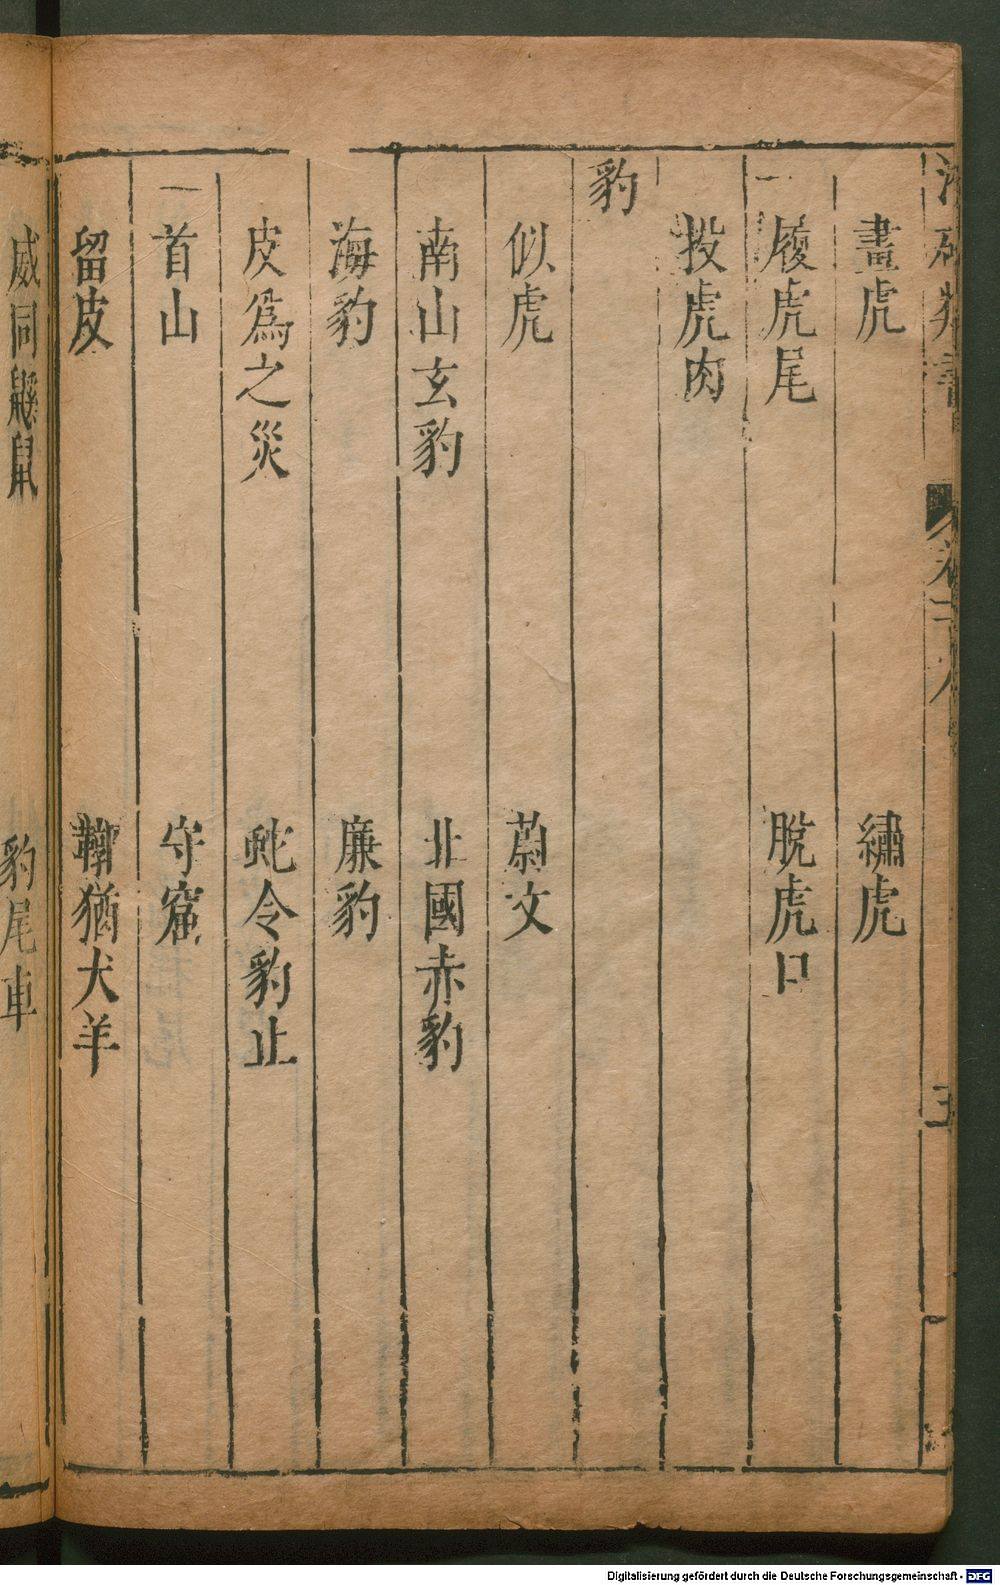 類書
畫虎　繡虎
履虎尾　脫虎口
投虎肉
豹
似虎　蔚文
南山玄豹　北國赤豹
海豹　廉豹
皮爲之災　令豹止
首山　守窟
留皮　鞹猶犬羊
威同鼠　豹尾車
Digitalisierung gefördert durch die Deutsche Forschungsgemeinschaft - DFG